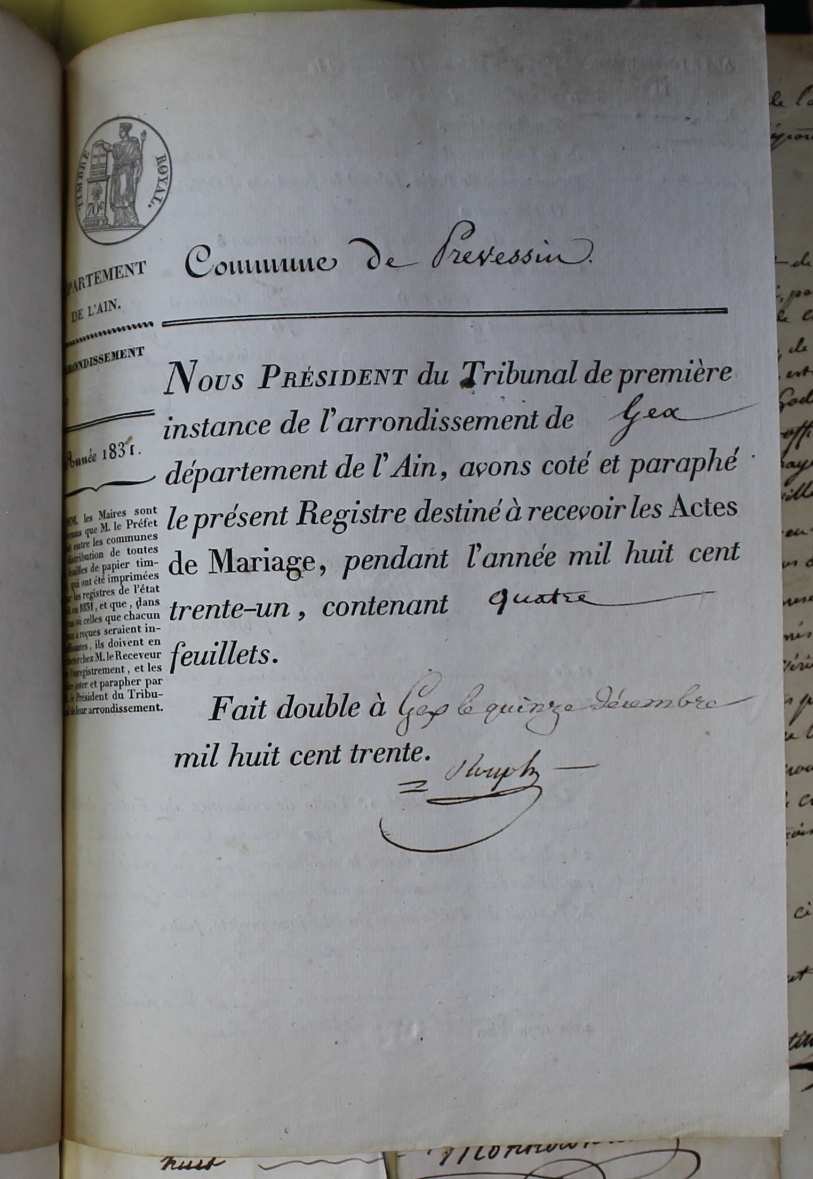 TIMBRE ROYAL.
70c
Commune de Prevessin.
PARTEMENT
DE L'AIN.
RONDISSEMENT
Année 1831.
MM. les Maires sont
que M. le Préfet
entre les communes
distribution de toutes
feuilles de papier tim-
qui ont été imprimées
les registres de l'état
1831, et que, dans
celles que chacun
reçues seraient in-
ils doivent en
chez M. le Receveur
enregistrement, et les
coter et parapher par
le Président du Tribu-
de leur arrondissement.
Nous Président du Tribunal de première
instance de l'arrondissement de Gex
département de l'Ain, avons coté et paraphé
le présent Registre destiné à recevoir les Actes
de Mariage, pendant l'année mil huit cent
trente-un, contenant quatre
feuillets.
Fait double à Gex le quinze décembre
mil huit cent trente.
huit